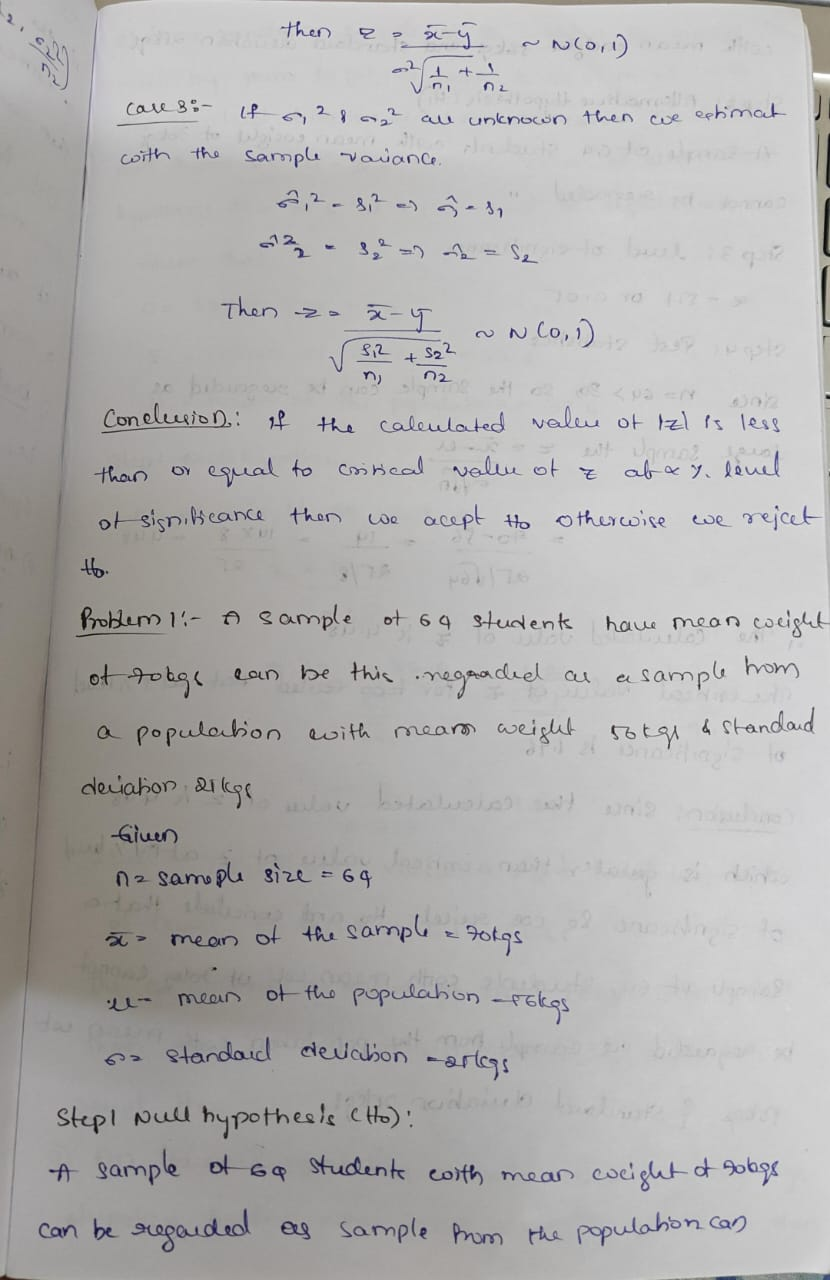 then z = x̄-ȳ / σ²√(1/n₁ + 1/n₂) ~ N(0,1)
Case 3:- If σ₁² & σ₂² are unknown then we estimat
with the sample variance.
σ̂₁² = s₁² => σ̂ = s₁
σ̂₂² = s₂² => σ̂₂ = s₂
Then z = x̄-ȳ / √(s₁²/n₁ + s₂²/n₂) ~ N(0,1)
Conclusion: If the calculated value of |z| is less
than or equal to critical value of z at α %. level
of significance then we acept H₀ otherwise we rejcet
H₀.
Problem 1:- A sample of 64 students have mean weight
of 70kgs can be this regarded as a sample from
a population with mean weight 56kgs & standard
deviation 25kgs
Given
n = sample size = 64
x̄ = mean of the sample = 70kgs
μ = mean of the population = 56kgs
σ = standard deviation = 25kgs
Step1 Null hypothesis (H₀):
A sample of 64 students with mean weight of 70kgs
can be regarded as sample from the population can